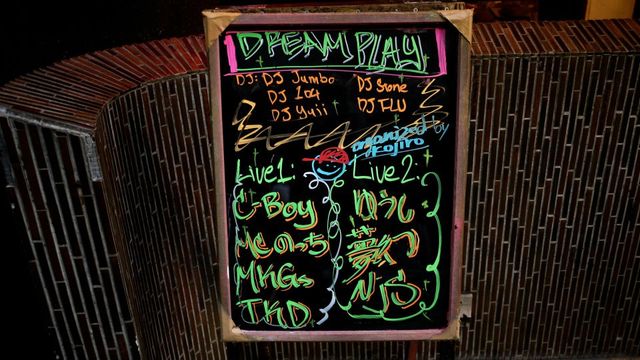 DREAM PLAY
DJ: DJ Jumbo
DJ 104
DJ Yuii
DJ Stone
DJ FLU
organized by
kojiro
Live1:
C-Boy
MC のっち
MKGs
TKD
Live2:
ゆうし
夢幻
NJS